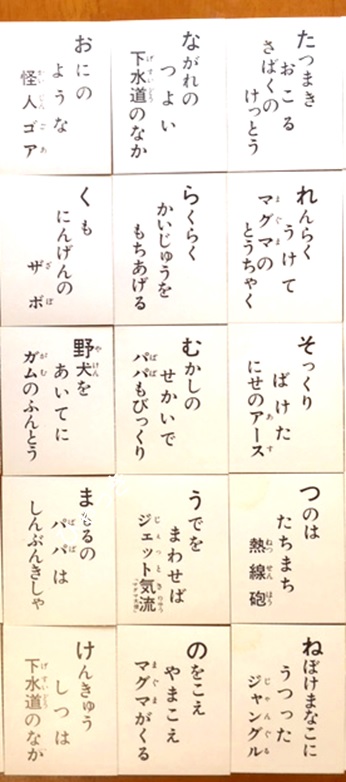 たつまき
おこる
さばくの
けっとう
ながれの
つよい
下水道のなか
おにの
ような
怪人ゴア
れんらく
うけて
マグマの
とうちゃく
らくらく
かいじゅうを
もちあげる
くも
にんげんの
ザボ
そっくり
ばけた
にせのアース
むかしの
せかいで
パパもびっくり
野犬を
あいてに
ガムのふんとう
つのは
たちまち
熱線砲
うでを
まわせば
ジェット気流
まもるの
パパは
しんぶんきしゃ
ねぼけまなこに
うつった
ジャングル
のをこえ
やまこえ
マグマがくる
けんきゅう
しつは
下水道のなか